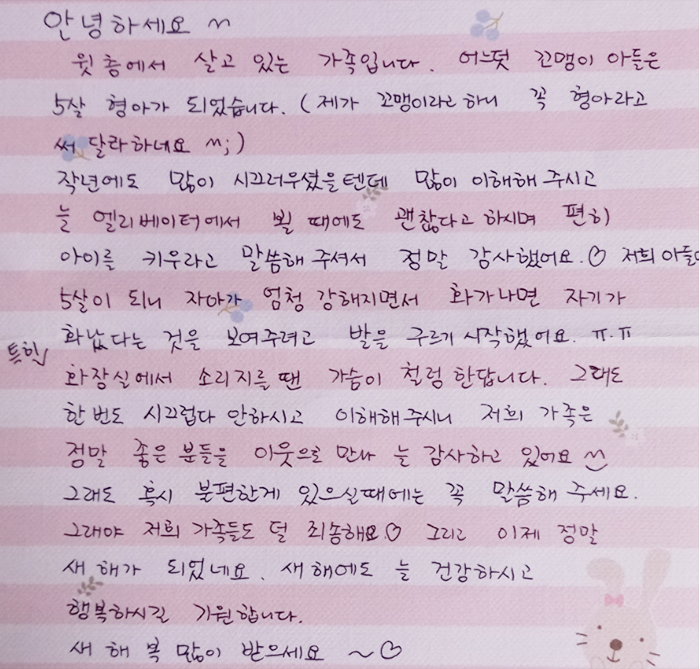 안녕하세요 ^^
윗층에서 살고 있는 가족입니다. 어느덧 꼬맹이 아들은
5살 형아가 되었습니다. (제가 꼬맹이라고 하니 꼭 형아라고
써 달라하네요 ^^;)
작년에도 많이 시끄러우셨을텐데 많이 이해해 주시고
늘 엘리베이터에서 뵐 때에도 괜찮다고 하시며 편히
아이를 키우라고 말씀해 주셔서 정말 감사했어요.♡ 저희 아들이
5살이 되니 자아가 엄청 강해지면서 화가나면 자기가
화났다는 것을 보여주려고 발을 구르기 시작했어요. ㅠ.ㅠ
특히 화장실에서 소리지를 땐 가슴이 철렁 한답니다. 그래도
한번도 시끄럽다 안하시고 이해해주시니 저희 가족은
정말 좋은 분들을 이웃으로 만나 늘 감사하고 있어요 ^^
그래도 혹시 불편한게 있으실때에는 꼭 말씀해 주세요.
그래야 저희 가족들도 덜 죄송해요♡ 그리고 이제 정말
새 해가 되었네요. 새 해에도 늘 건강하시고
행복하시길 기원합니다.
새 해 복 많이 받으세요 ~♡